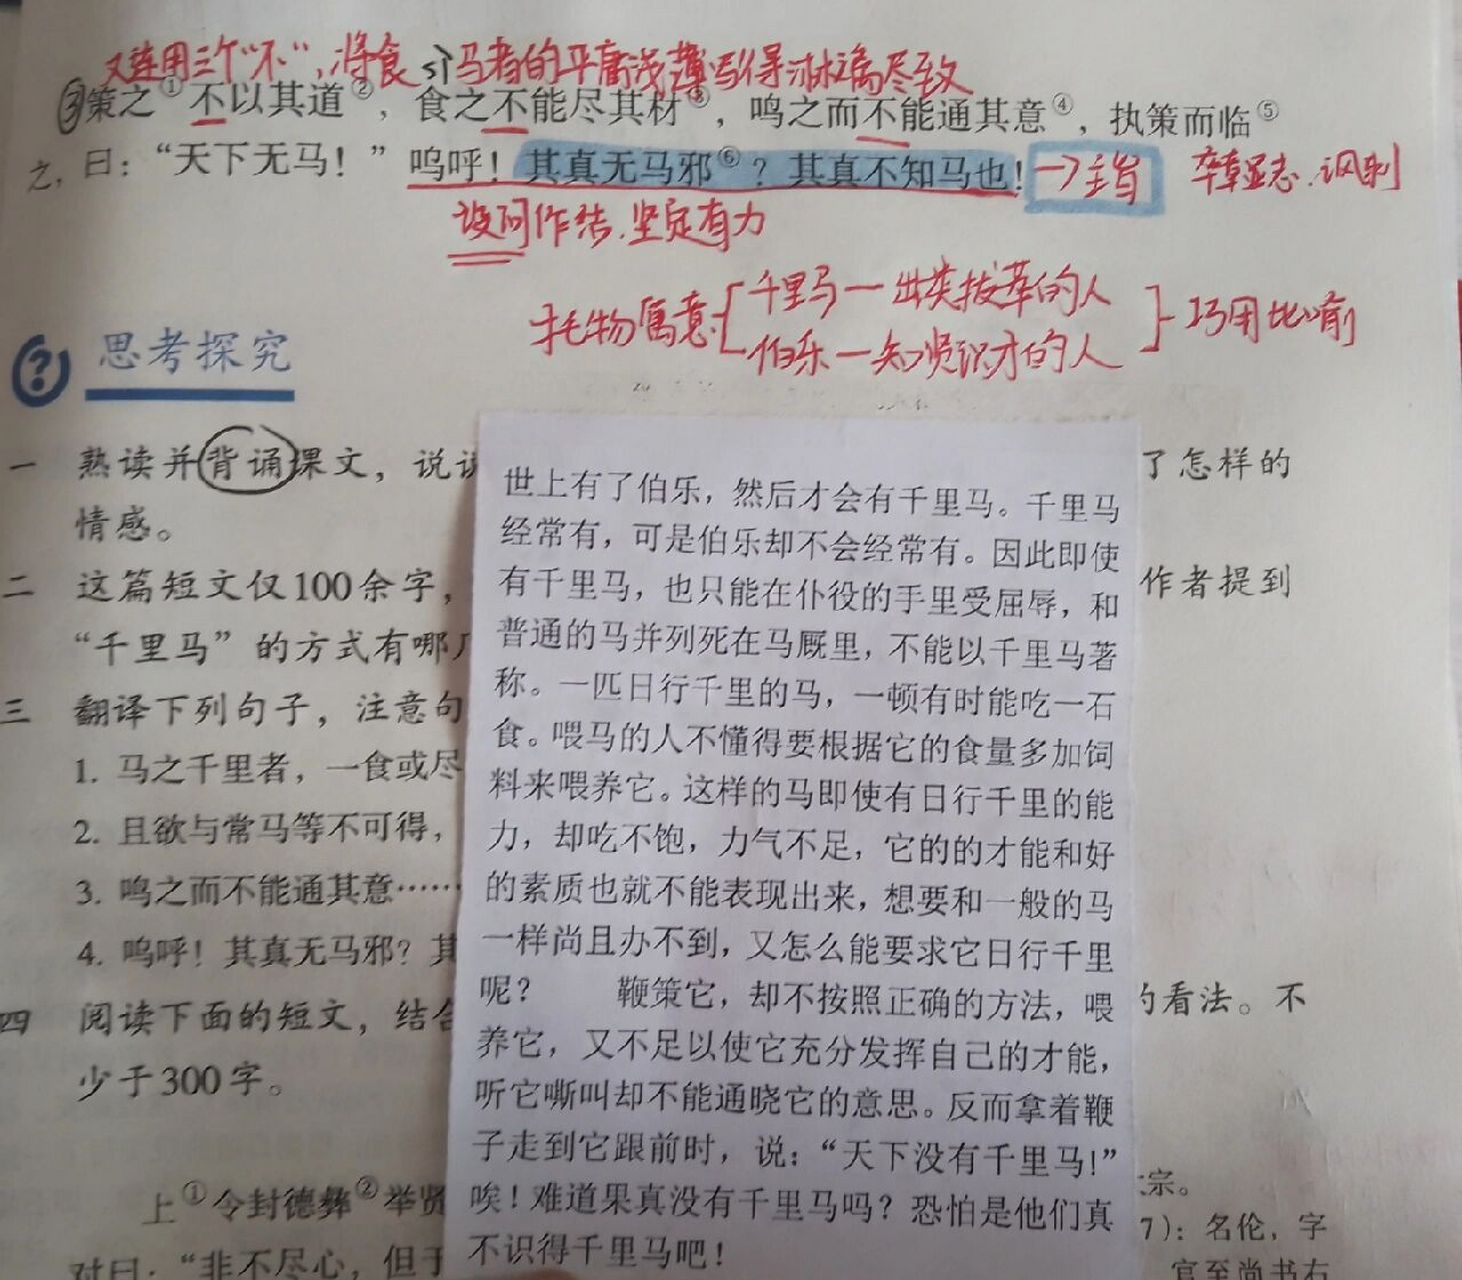 又连用三个“不”，将食马者的平庸浅薄写得淋漓尽致
③策之①不以其道②，食之不能尽其材③，鸣之而不能通其意④，执策而临⑤
之，曰：“天下无马！”呜呼！其真无马邪⑥？其真不知马也！→主旨 卒章显志、讽刺
设问作结、坚定有力
托物寓意：
千里马—出类拔萃的人
伯乐—知贤识才的人
巧用比喻
思考探究
一 熟读并背诵课文，说说
了怎样的
情感。
二 这篇短文仅100余字，
作者提到
“千里马”的方式有哪几
三 翻译下列句子，注意句
1. 马之千里者，一食或尽
2. 且欲与常马等不可得，
3. 鸣之而不能通其意……
4. 呜呼！其真无马邪？其
四 阅读下面的短文，结合
的看法。不
少于300字。
上①令封德彝②举贤
对曰：“非不尽心，但于
世上有了伯乐，然后才会有千里马。千里马
经常有，可是伯乐却不会经常有。因此即使
有千里马，也只能在仆役的手里受屈辱，和
普通的马并列死在马厩里，不能以千里马著
称。一匹日行千里的马，一顿有时能吃一石
食。喂马的人不懂得要根据它的食量多加饲
料来喂养它。这样的马即使有日行千里的能
力，却吃不饱，力气不足，它的的才能和好
的素质也就不能表现出来，想要和一般的马
一样尚且办不到，又怎么能要求它日行千里
呢？ 鞭策它，却不按照正确的方法，喂
养它，又不足以使它充分发挥自己的才能，
听它嘶叫却不能通晓它的意思。反而拿着鞭
子走到它跟前时，说：“天下没有千里马！”
唉！难道果真没有千里马吗？恐怕是他们真
不识得千里马吧！
宗。
7）：名伦，字
官至尚书右